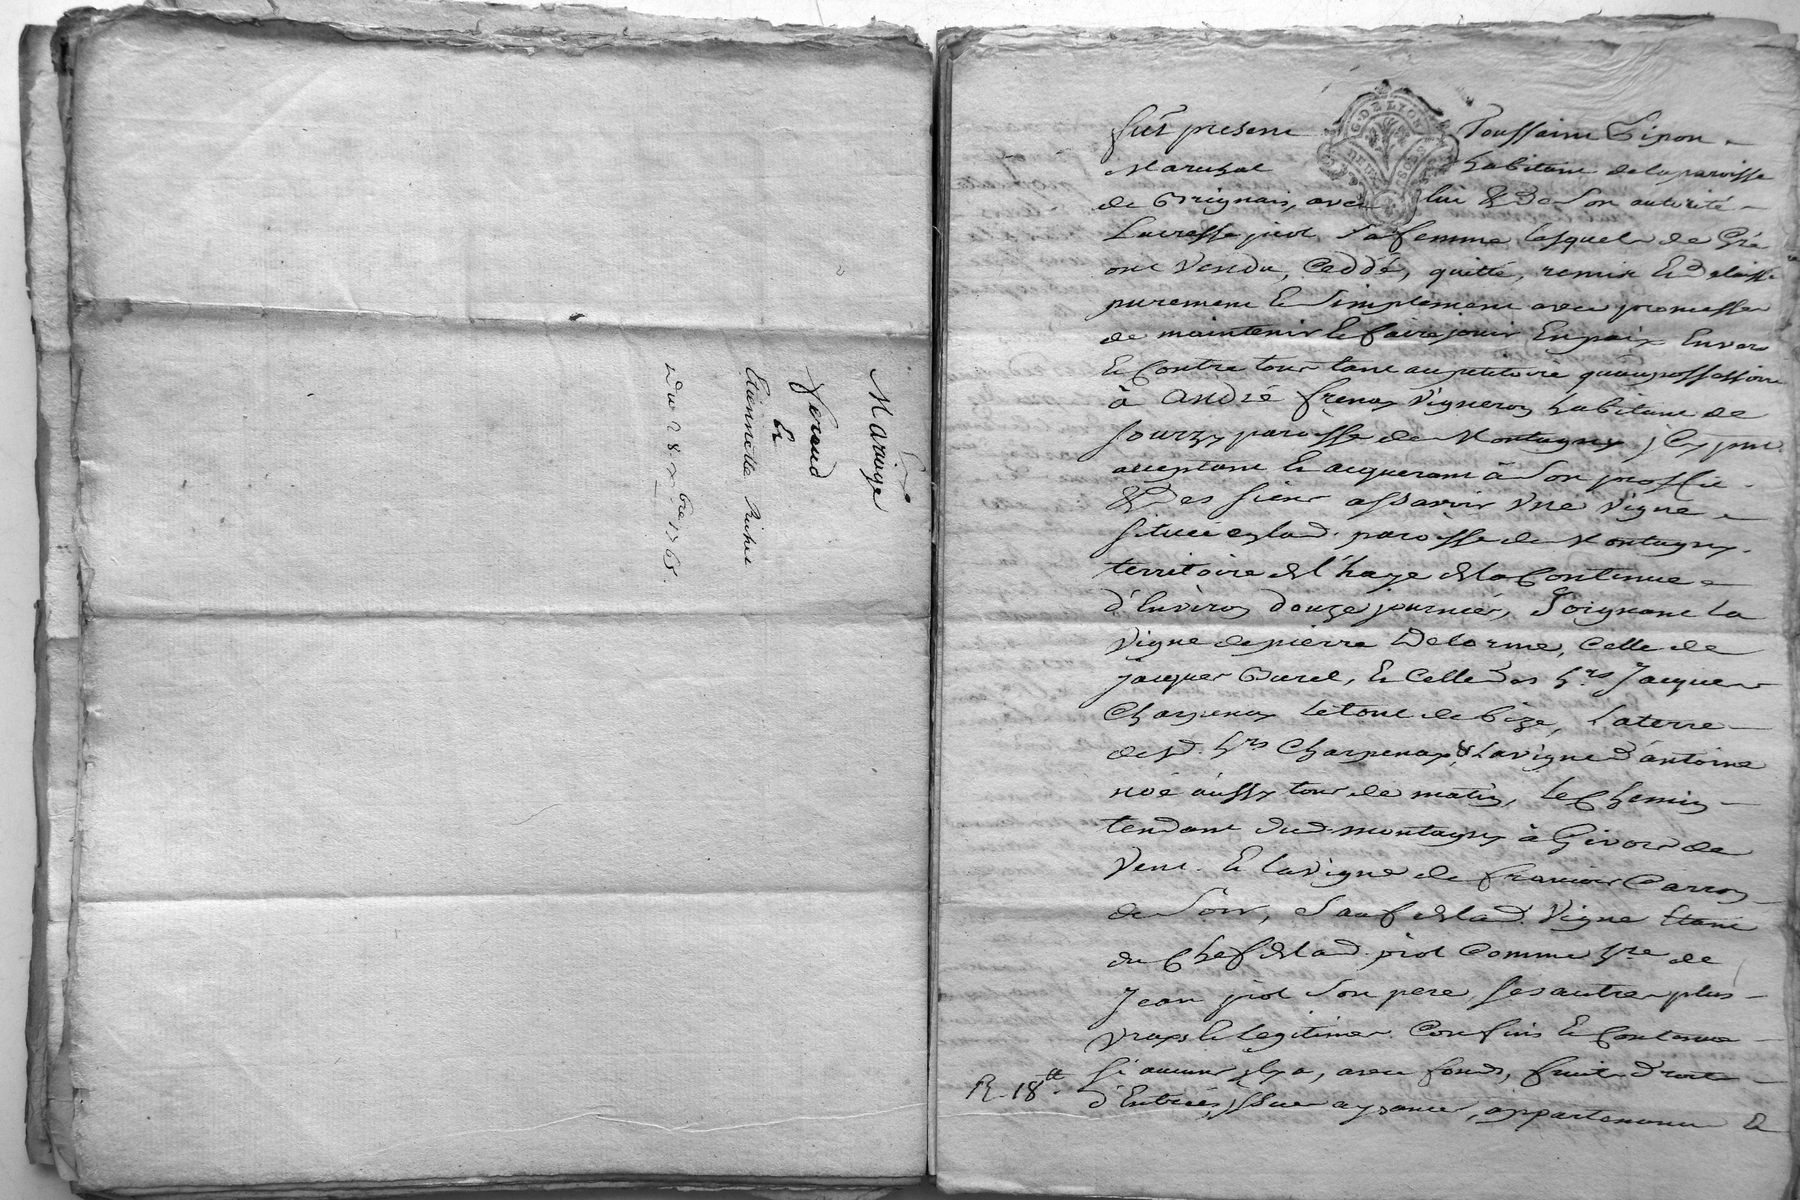 Mariage
feraud
Et
Etiennette
Du 28 9bre 1765.
G. DE LYON
DEUX
fut present Toussaint
Marechal habitant de la paroisse
de Grignais, avec lui & de Son autorité
piol Sa femme, lesquels de Gré
ont Vendu, Ceddé, quitté, remis Et
purement Et Simplement avec promesse
de maintenir Et faire jouir En paix Envers
Et Contre tous tant au petitoire qu'au possessoire
à andré frenay Vigneron habitant de
Sourzy paroisse de Montagny icy pnt
acceptant Et acquerant à Son proffit
& Des Siens assavoir Vne Vigne
Située en lad. paroisse de Montagny
territoire de l'haye de la Contenue
d'Environ douze journées, Joignant La
Vigne de pierre Delorme, Celle de
jacques Burel, Et Celle Des hrs Jacques
Charpenay Le tout de bize, La terre
desd. hrs Charpenay & La vigne d'antoine
noé aussy tout de matin, Le Chemin
tendant dud. montagny à Givors de
Vent. Et la Vigne de françois Carron
de Soir, Sauf de lad. Vigne Etant
du Chef de lad. piol Comme hre de
Jean piol Son pere, Ses autres plus
vrays Et legitimes Confins Et Contenue
Si aucuns il y a, avec fonds, fruits droits
R. 18tt
d'Entrées, issues aysances, appartenances &